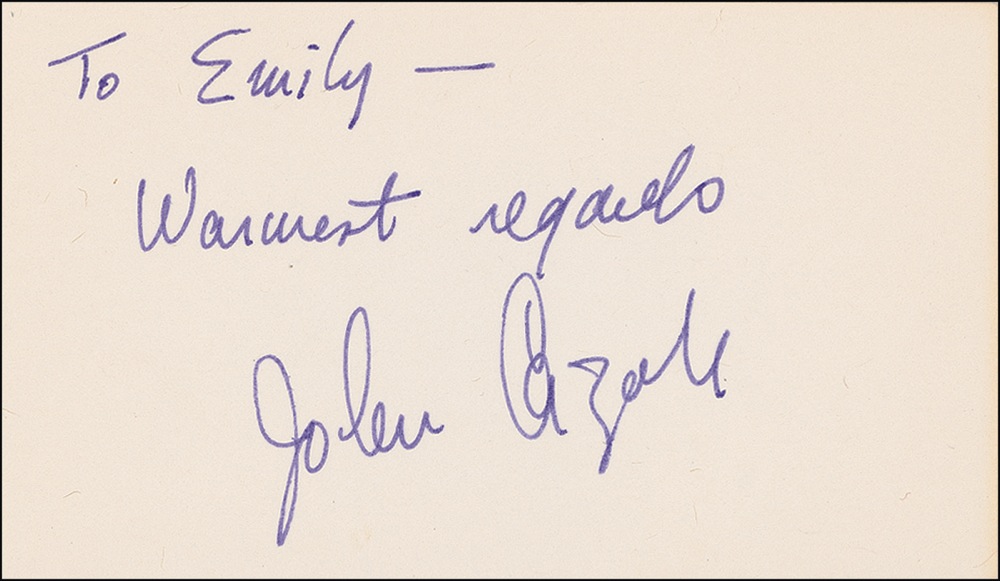 To Emily —
Warmest regards
John Cazale